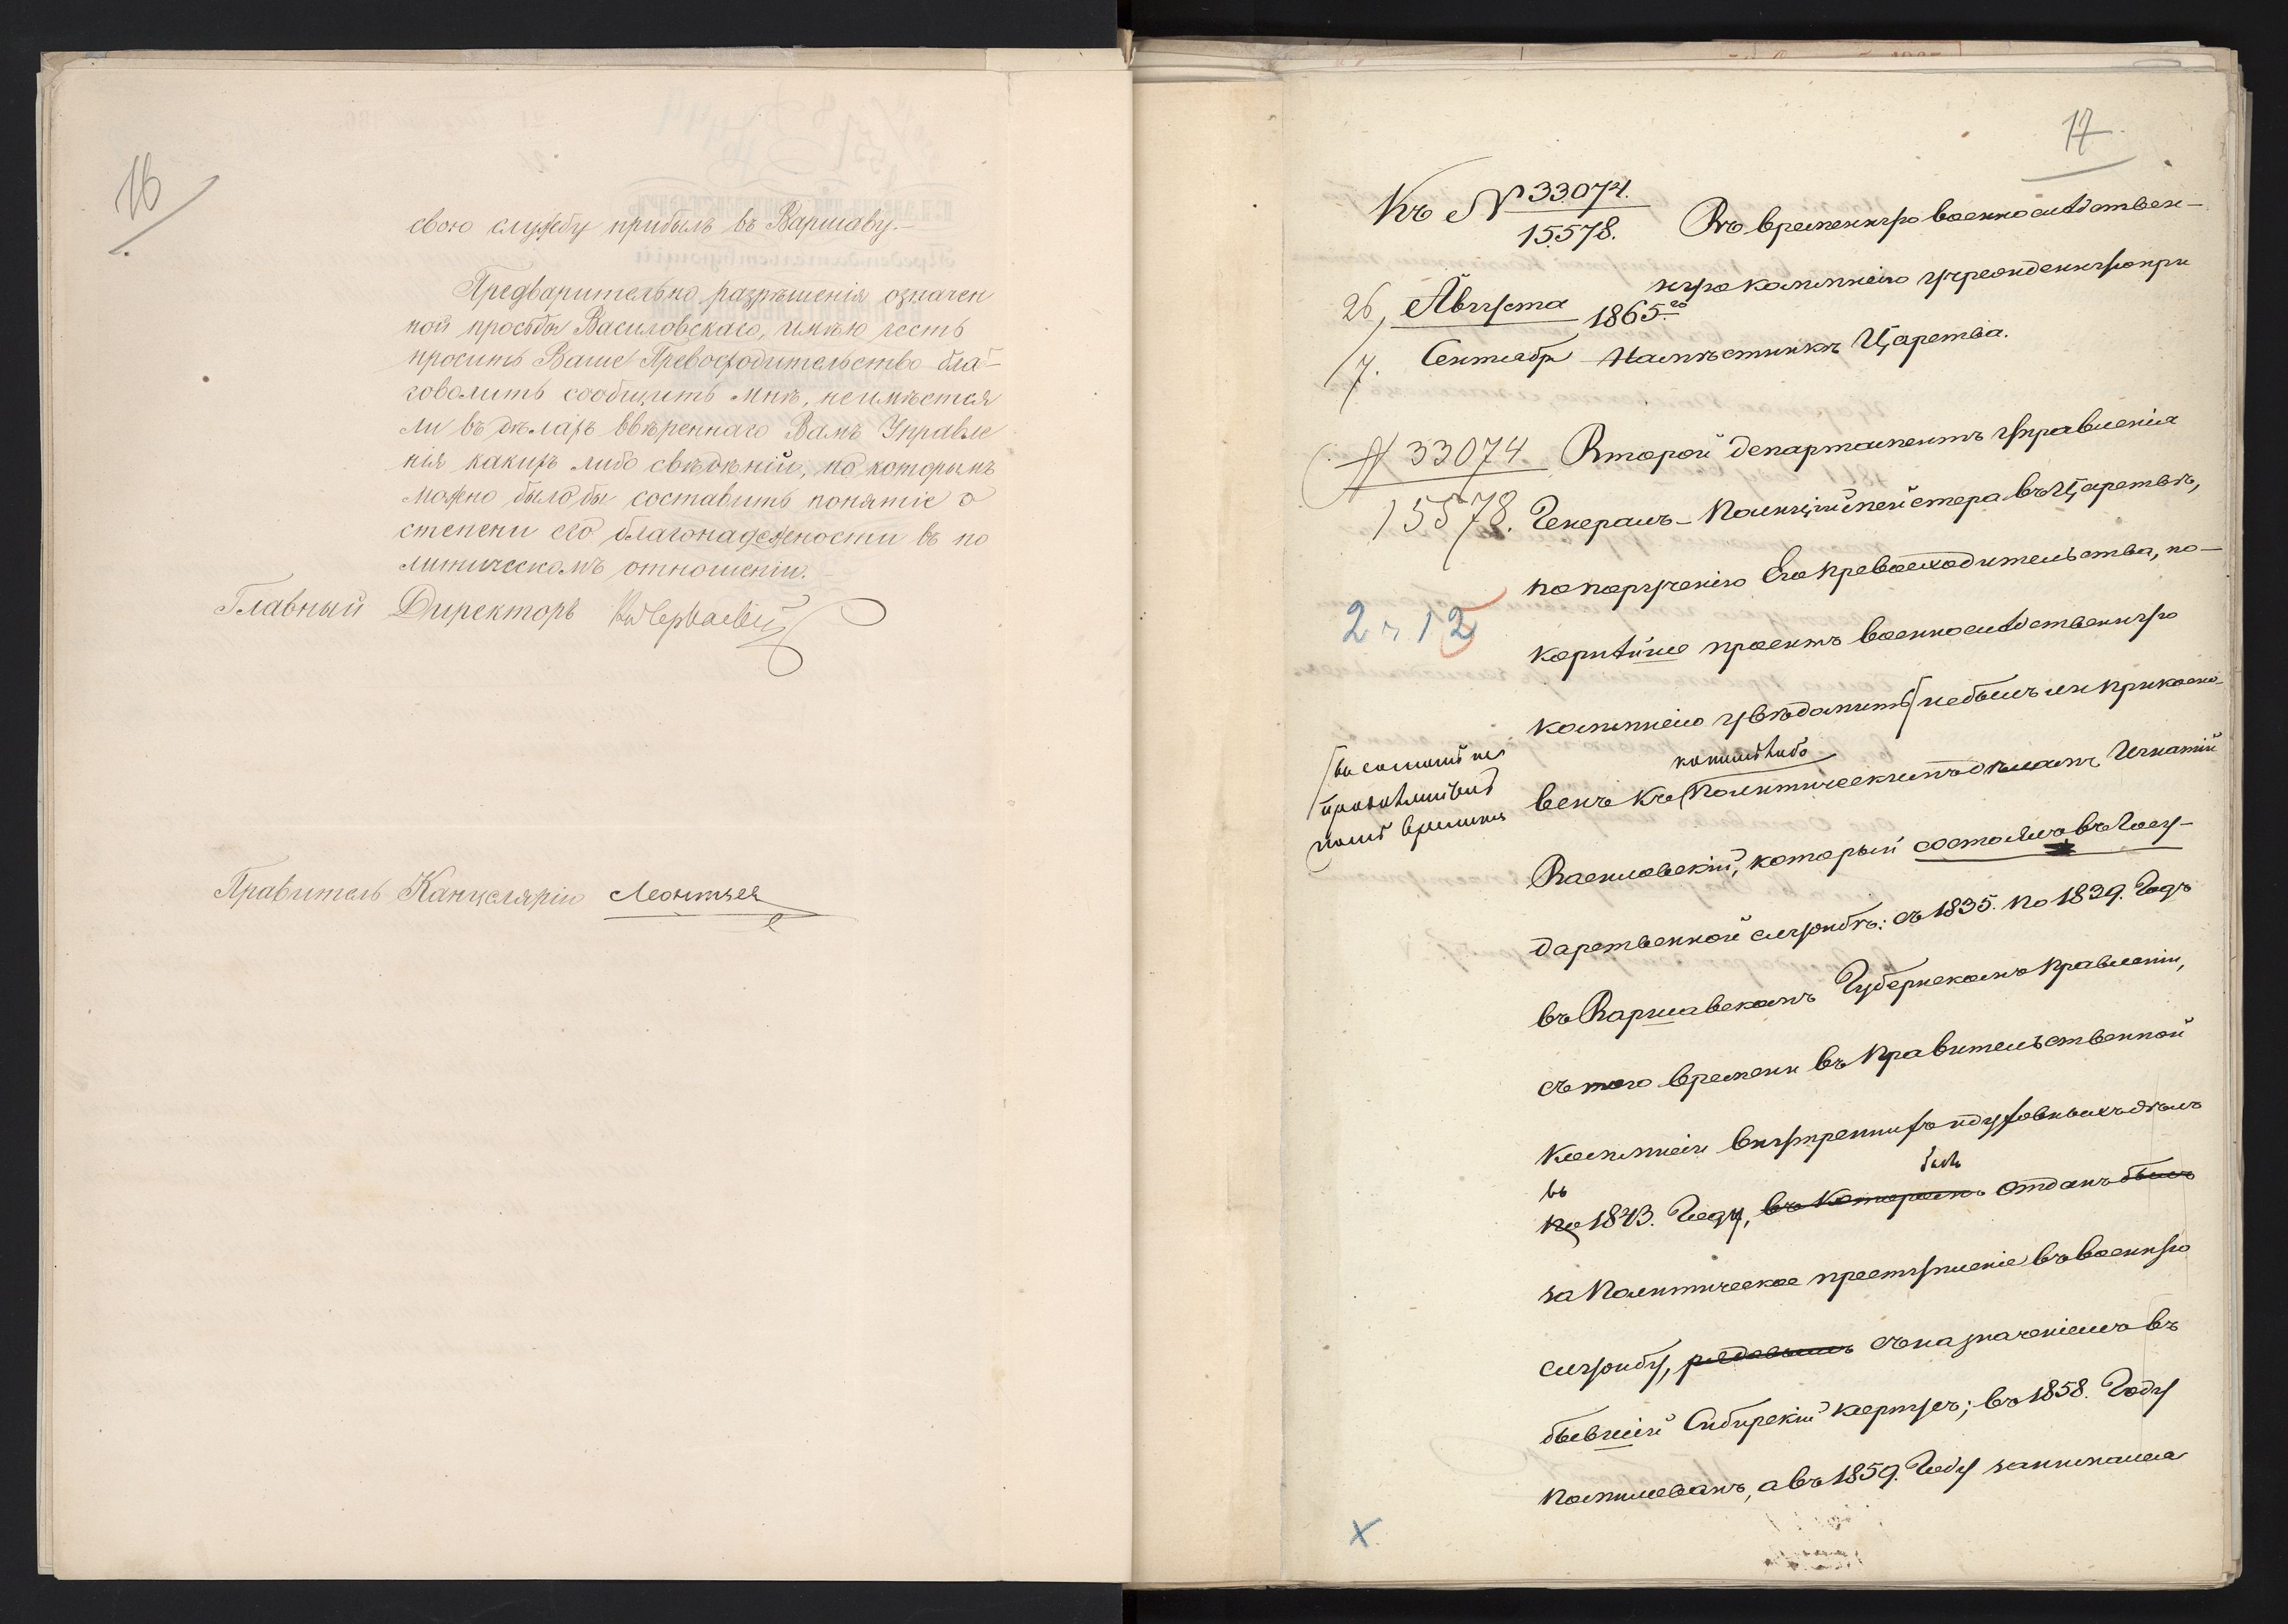 16
свою службу прибылъ въ Варшаву.—
Предварительно разрѣшенія означен
ной просьбы Василовскаго, имѣю честь
просить Ваше Превосходительство бла-
говолить сообщить мнѣ, неимѣется
ли въ дѣлахъ ввѣреннаго Вамъ Управле
нія какихъ либо свѣдѣній, по которымъ
можно было бы составить понятіе о
степени его благонадежности въ по
литическомъ отношеніи.—
Главный Директоръ
Правитель Канцеляріи Леонтьев
17.
Къ № 33074.
15578.
26, Августа
1865.го
7. Сентября
Въ временную военнослѣдствен-
ную коммисію учрежденную при
Намѣстникѣ Царства.
№ 33074
15578.
2 ч 12
Второй департаментъ Управленія
Генералъ-Полицiймейстера въ Царствѣ,
по порученію Его Превосходительства, по-
корнѣйше проситъ военнослѣдственную
коммисію увѣдомить не былъ ли прикосно-
какимъ либо
венъ къ политическимъ дѣламъ Игнатій
Василовскій, который состоялъ въ Госу-
дарственной службѣ: съ 1835. по 1839. Годъ
въ Варшавскомъ Губернскомъ Правленіи,
съ того времени въ Правительственной
Коммисіи внутреннихъ и духовныхъ дѣлъ
въ
былъ
по 1843. Году, въ которомъ отданъ былъ
за политическое преступленіе въ военную
службу, рядовымъ съ назначеніемъ въ
бывшій Сибирскій корпусъ; въ 1858. Году
помилованъ, а въ 1859. Году занимался
х